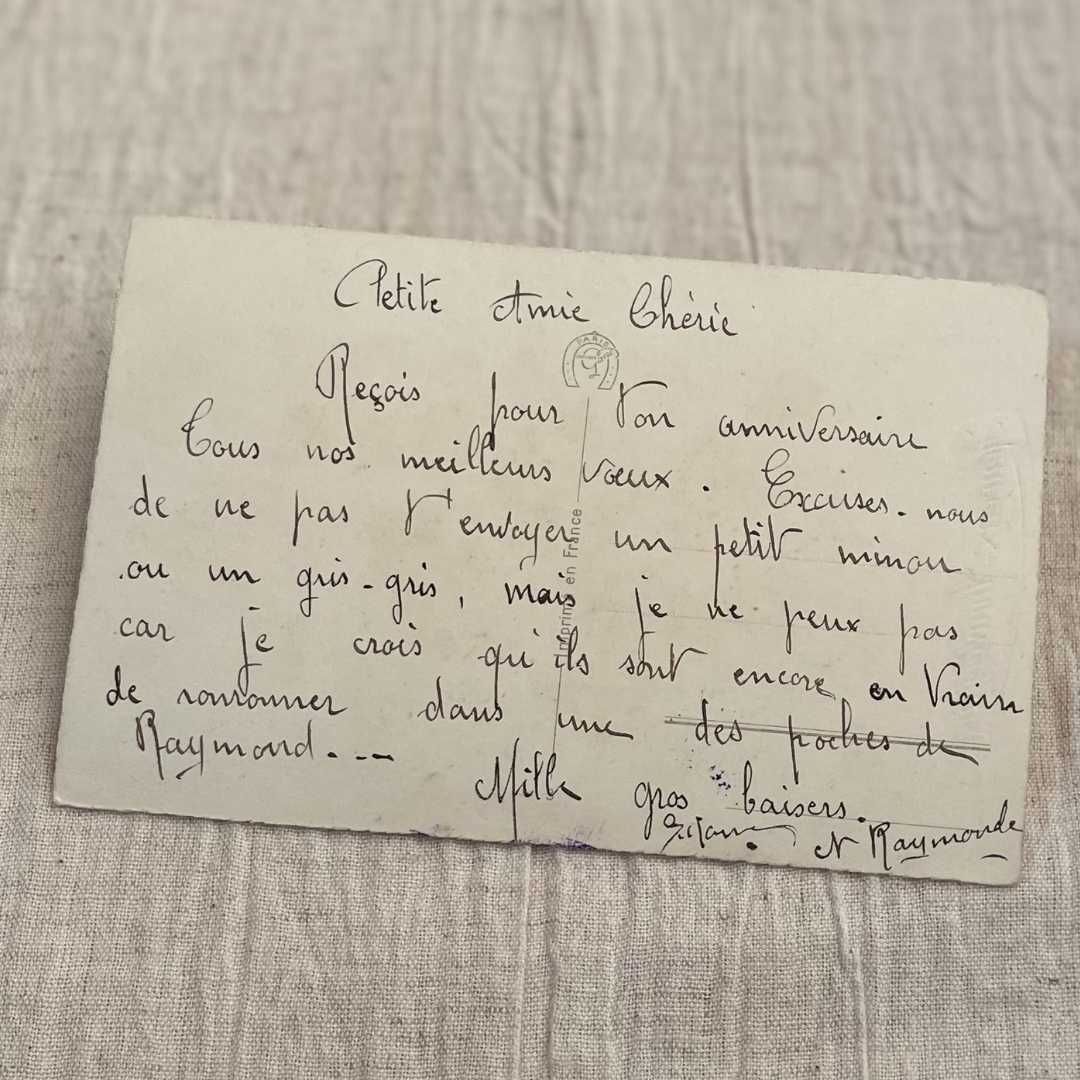 Petite Amie Chérie
PARIS
Reçois pour ton anniversaire
Tous nos meilleurs vœux. Excuses-nous
de ne pas t'envoyer un petit minou
ou un gris-gris, mais je ne peux pas
car je crois qu'ils sont encore en train
de ronronner dans une des poches de
Raymond...
Mille gros baisers.
N Raymonde
Imprimé en France